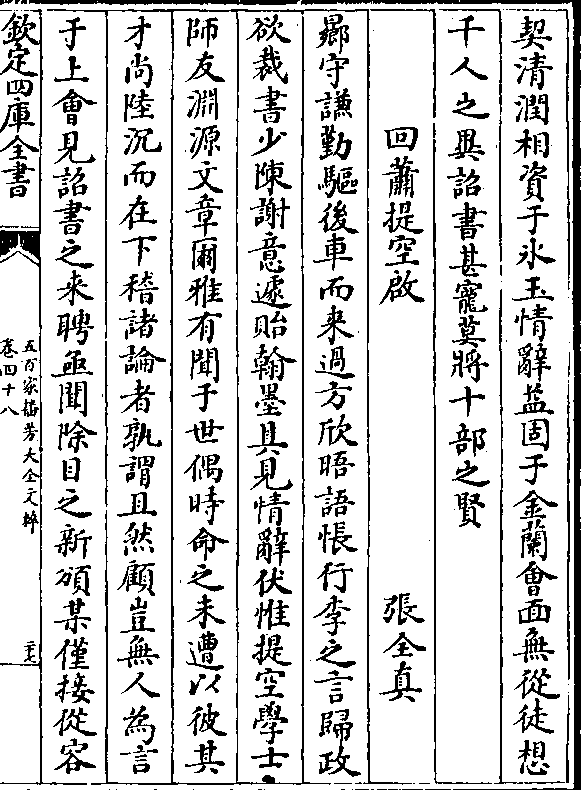 契清潤相資于氷玉情辭益固于金蘭會面無從徒想
千人之異詔書甚寵莫將十部之賢
回蕭提空啟
張全真
鄉守謙勤驅後車而来過方欣晤語悵行李之言歸政
欲裁書少陳謝意遽貽翰墨具見情辭伏惟提空學士
師友淵源文章爾雅有聞于世偶時命之未遭以彼其
才尚陸沉而在下稽諸論者孰謂且然顧豈無人為言
于上會見詔書之来聘亟聞除目之新頒某僅接從容
欽定四庫全書
五百家播芳大全文粹
卷四十八